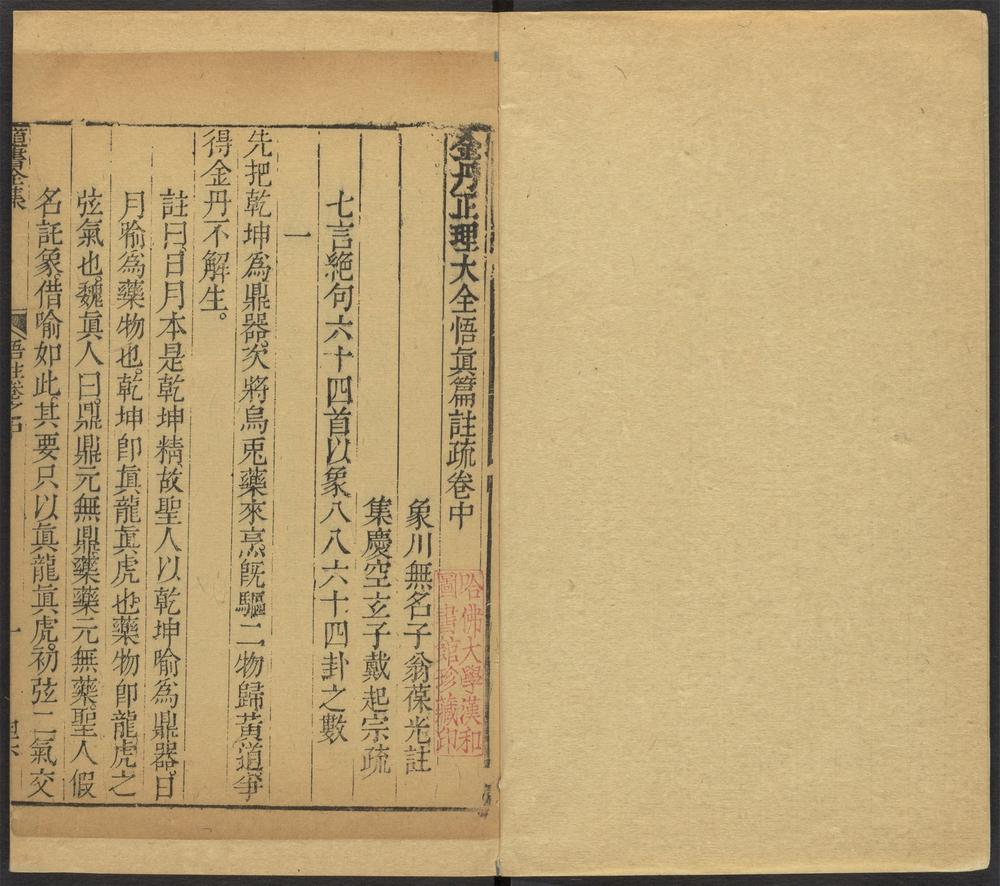 金丹正理大全悟眞篇註疏卷中
象川無名子翁葆光註
集慶空玄子戴起宗疏
七言絶句六十四首以象八八六十四卦之數
一
先把乾坤爲鼎器次將烏兎藥來烹旣驅二物歸黃道爭
得金丹不解生。
註曰日月本是乾坤精故聖人以乾坤喻爲鼎器。日
月喻爲藥物也。乾坤卽眞龍眞虎也藥物卽龍虎之
弦氣也。魏眞人曰。鼎鼎元無鼎藥藥元無藥。聖人假
名託象。借喻如此。其要只以眞龍眞虎。初弦二氣交
道書全集
悟註卷之四
一
哈佛大學漢和
圖書館珍藏印